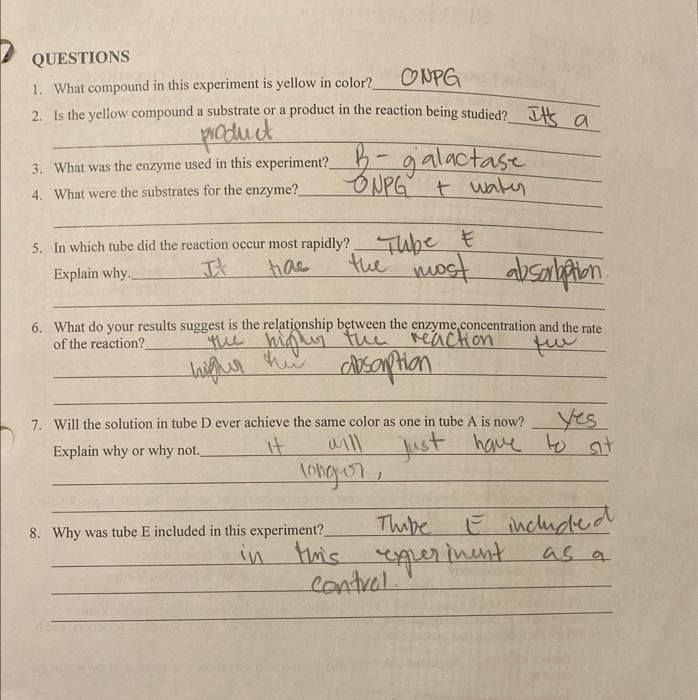 QUESTIONS
1. What compound in this experiment is yellow in color? ONPG
2. Is the yellow compound a substrate or a product in the reaction being studied? Its a
product
3. What was the enzyme used in this experiment? B-galactase
4. What were the substrates for the enzyme? ONPG + water
5. In which tube did the reaction occur most rapidly? Tube E
Explain why. It has the most absorbption.
6. What do your results suggest is the relationship between the enzyme concentration and the rate
of the reaction? the higher the reaction the
higher the absorption
7. Will the solution in tube D ever achieve the same color as one in tube A is now? Yes
Explain why or why not. it will just have to sit
longer,
8. Why was tube E included in this experiment? Thube E included
in this experiment as a
control.